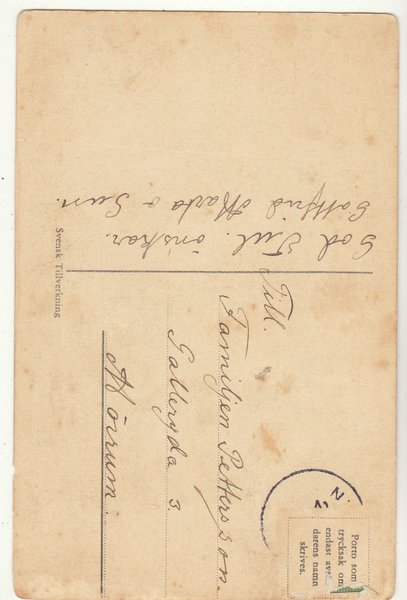 God Jul. önskar.
Gottfrid Marta o Sven.
Svensk Tillverkning
Till.
Familjen Pettersson.
Galleryda 3.
Mörrum.
Porto som
trycksak om
endast avsändarens namn
skrives.